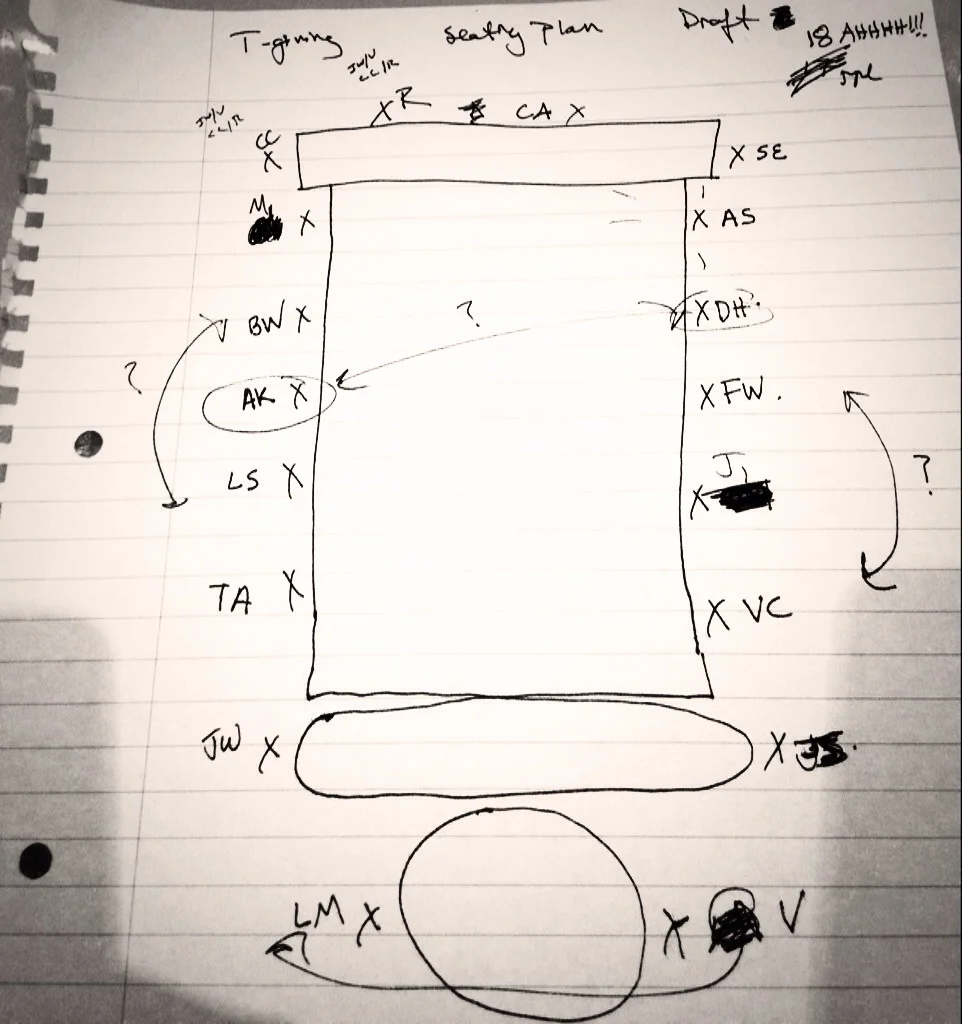 T-giving Seating Plan Draft
18 AHHHH!!!
JW/V
CC/R
JW/V
CC/R
X R CA X
CC
X X SE
M X X AS
BW X ? X DH
? AK X X FW.
LS X J ?
X
TA X X VC
JW X X JS.
LM X X V
?